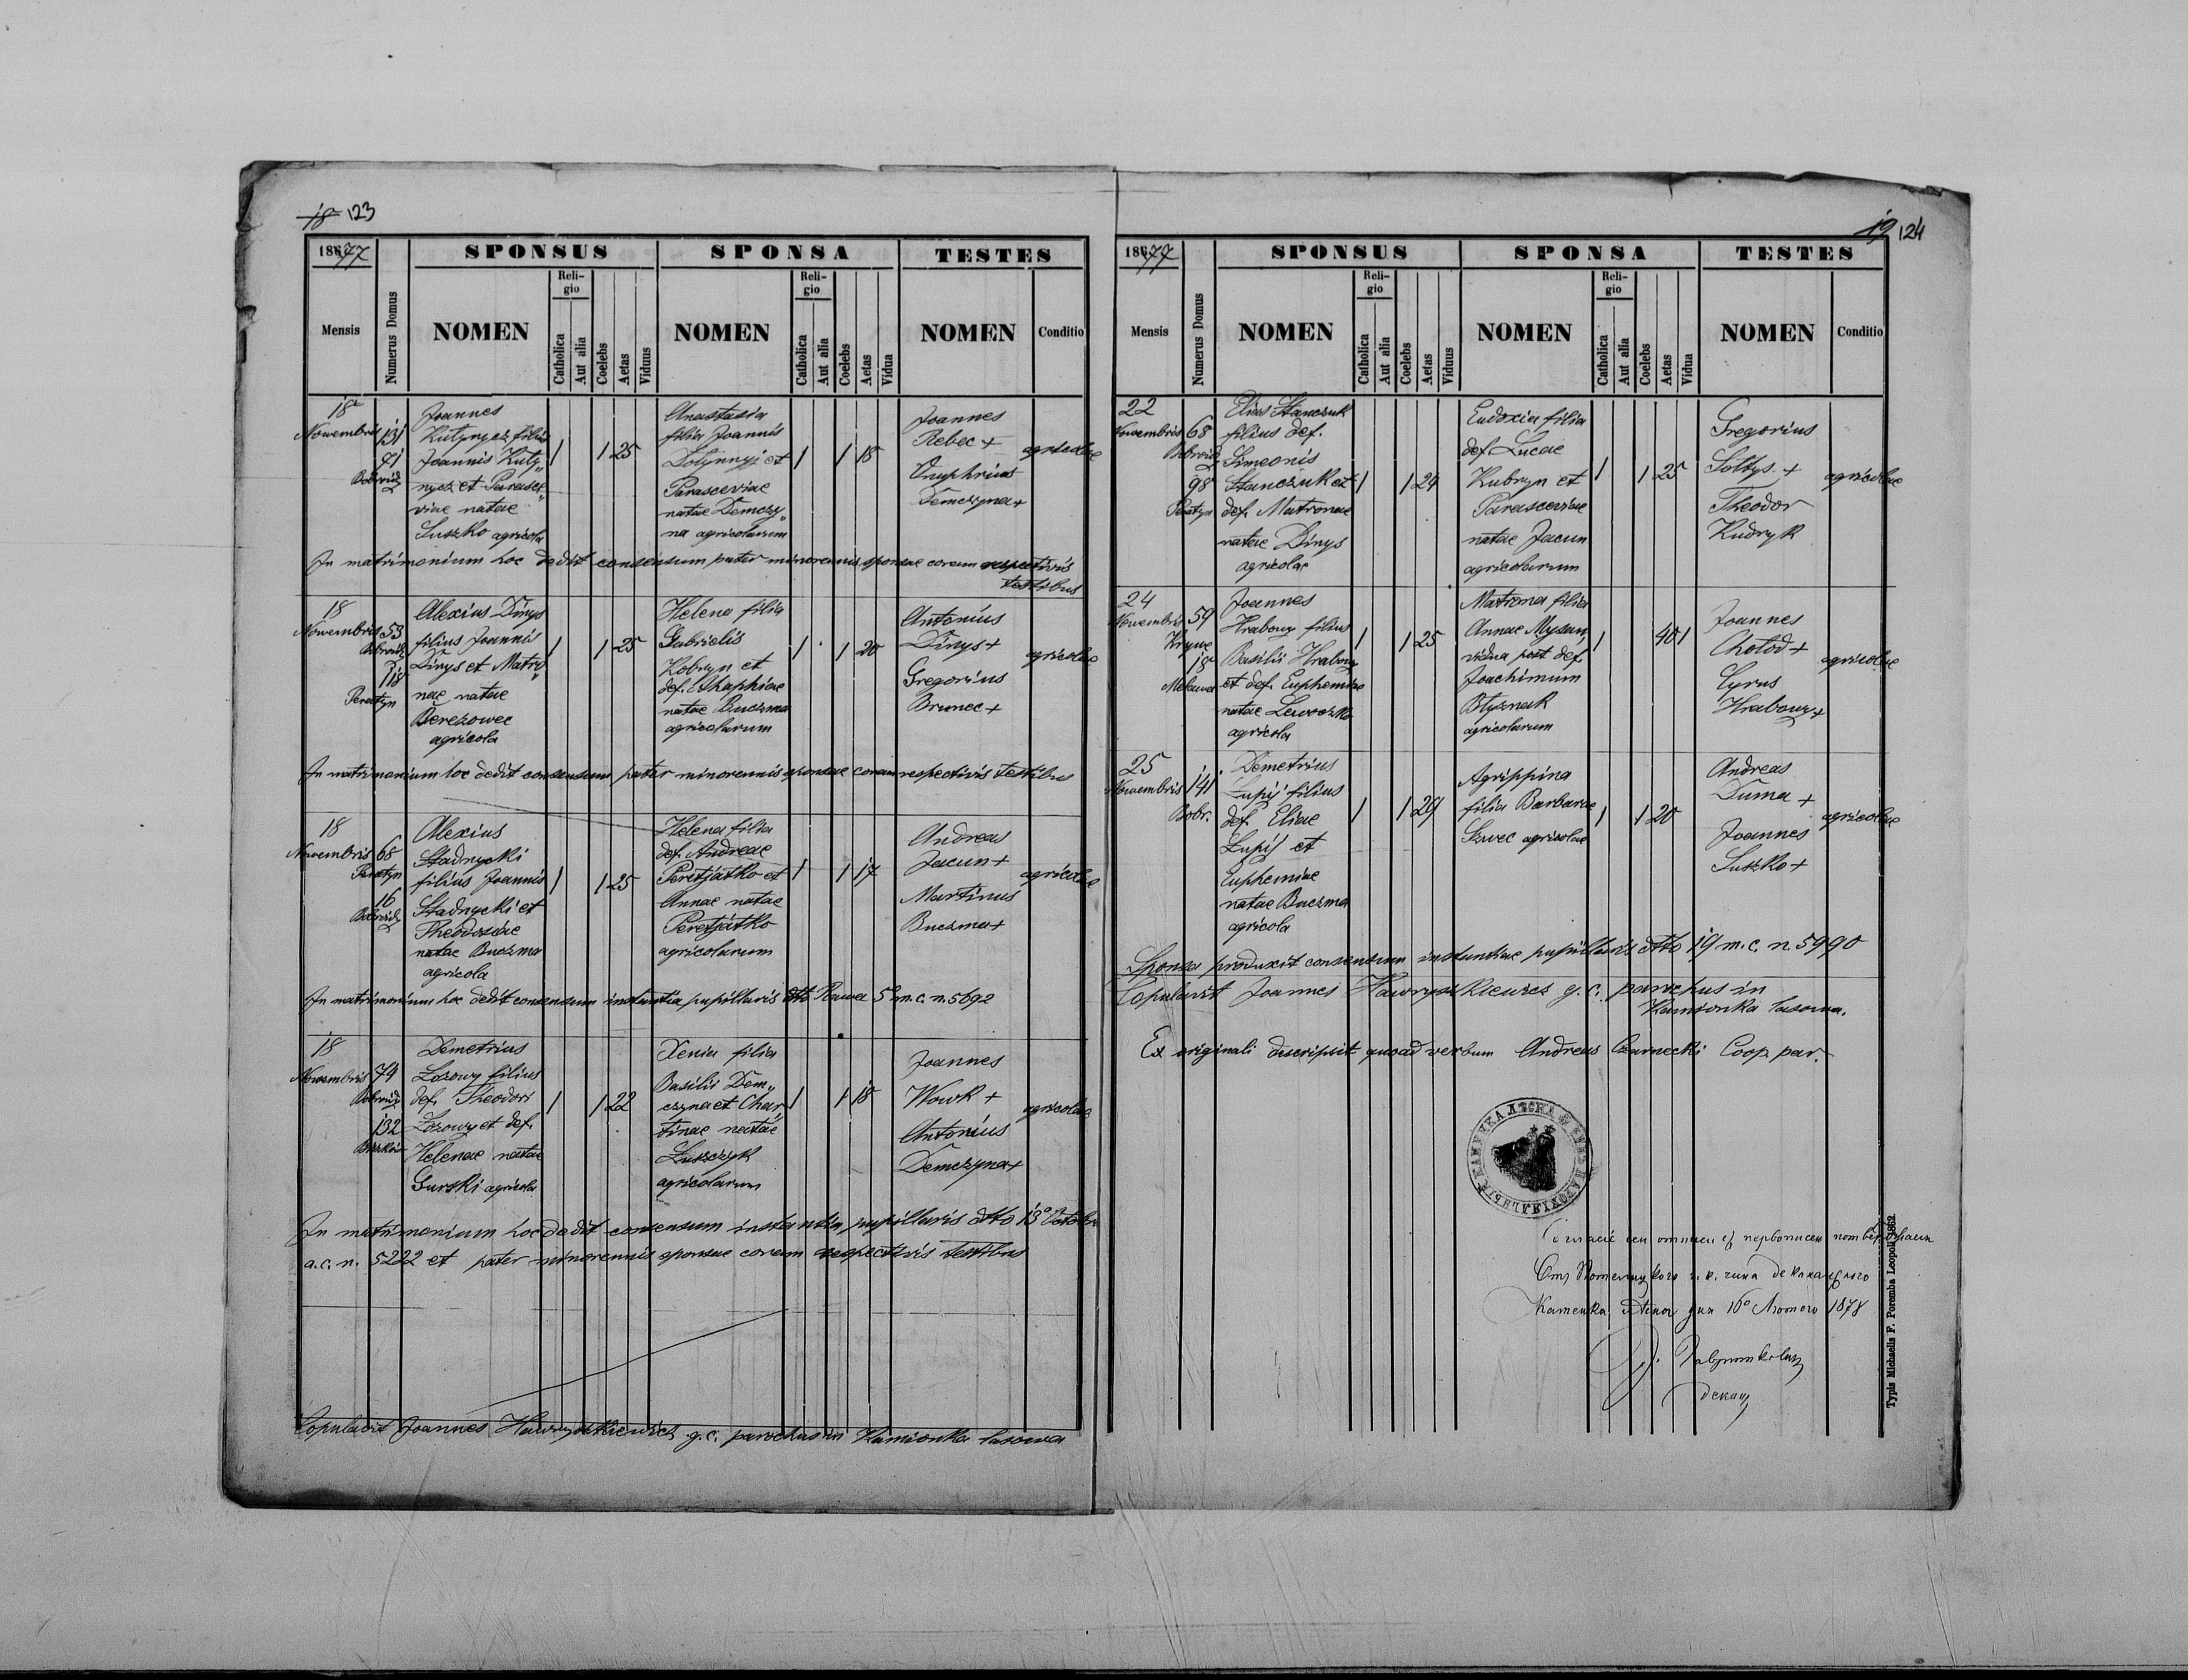 18 123
1877
SPONSUS
SPONSA
TESTES
Mensis
Numerus Domus
NOMEN
Religio
Catholica
Aut alia
Coelebs
Aetas
Viduus
NOMEN
Religio
Catholica
Aut alia
Coelebs
Aetas
Vidua
NOMEN
Conditio
18
Novembris 131
41
Joannes
Kutynycz filius
Joannis Kuty„
nycz et Parasce„
viae natae
Suszko agricola
1 1 25
Anastasia
filia Joannis
Dolynnyj et
Parasceviae
natae Demczy„
na agricolarum
1 1 18
Joannes
Rebec +
Onuphrius
Demczyna +
agricolae
In matrimonium hoc dedit consensum pater minorennis sponsae coram respectivis
testibus
18
Novembris 53
118
Peratyn
Alexius Dinys
filius Joannis
Dinys et Matro„
nae natae
Berezowec
agricola
1 1 25
Helena filia
Gabrielis
Kobryn et
def. Ahaphiae
natae Buczma
agricolarum
1 1 20
Antonius
Dinys +
Gregorius
Brunec +
agricolae
In matrimonium hoc dedit consensum pater minorennis sponsae coram respectivis testibus
18
Novembris 68
Peratyn
16
Alexius
Stadnycki
filius Joannis
Stadnycki et
Theodosiae
natae Buczma
agricola
1 1 25
Helena filia
def. Andreae
Peretjatko et
Annae natae
Peretjatko
agricolarum
1 1 17
Andreas
Jacun +
Martinus
Buczma +
agricolae
In matrimonium hoc dedit consensum instantia pupillaris dto Rawa 5 m. c. n. 5692
18
Novembris 74
132
Demetrius
Lozowy filius
def. Theodori
Lozowy et def.
Helenae natae
Gurski agricola
1 1 22
Xenia filia
Basilii Dem„
czyna et Char„
tinae natae
Luszczyk
agricolarum
1 1 18
Joannes
Wowk +
Antonius
Demczyna +
agricolae
In matrimonium hoc dedit consensum instantia pupillaris dto 13 Octobr
a. c. n. 5222 et pater minorennis sponsae coram respectivis testibus
Copulavit Joannes Hawryszkiewicz g. c. parochus in Kamionka lasowa
19 124
1877
SPONSUS
SPONSA
TESTES
Mensis
Numerus Domus
NOMEN
Religio
Catholica
Aut alia
Coelebs
Aetas
Viduus
NOMEN
Religio
Catholica
Aut alia
Coelebs
Aetas
Vidua
NOMEN
Conditio
22
Novembris 68
98
Peratyn
Elias Stanczuk
filius def.
Simeonis
Stanczuk et
def. Matronae
natae Dinys
agricolae
1 1 24
Eudoxia filia
def. Lucae
Kubryn et
Parasceviae
natae Jacun
agricolarum
1 1 25
Gregorius
Soltys +
Theodor
Kudryk
agricolae
24
Novembris 59
18
Joannes
Hrabowy filius
Basilii Hrabowy
et def. Euphemiae
natae Lewoczko
agricola
1 1 25
Matrona filia
Annae Mysan,
vidua post def.
Joachimum
Blyznak
agricolarum
1 40 1
Joannes
Cholod +
Cyrus
Hrabowy +
agricolae
25
Novembris 141
Bobr.
Demetrius
Lupij filius
def. Eliae
Lupij et
Euphemiae
natae Buczma
agricola
1 1 29
Agrippina
filia Barbarae
Szwec agricolae
1 1 20
Andreas
Duma +
Joannes
Suszko +
agricolae
Sponsa produxit consensum instantiae pupillaris dto 19 m. c. n. 5990
Copulavit Joannes Hawryszkiewicz g. c. parochus in
Kamionka lasowa.
Ex originali descripsit quoad verbum Andreas Czarnecki Coop. par.
Каменка дня 16 Лютого 1878
декан
Typis Michaelis F. Poremba Leopoli 1862.